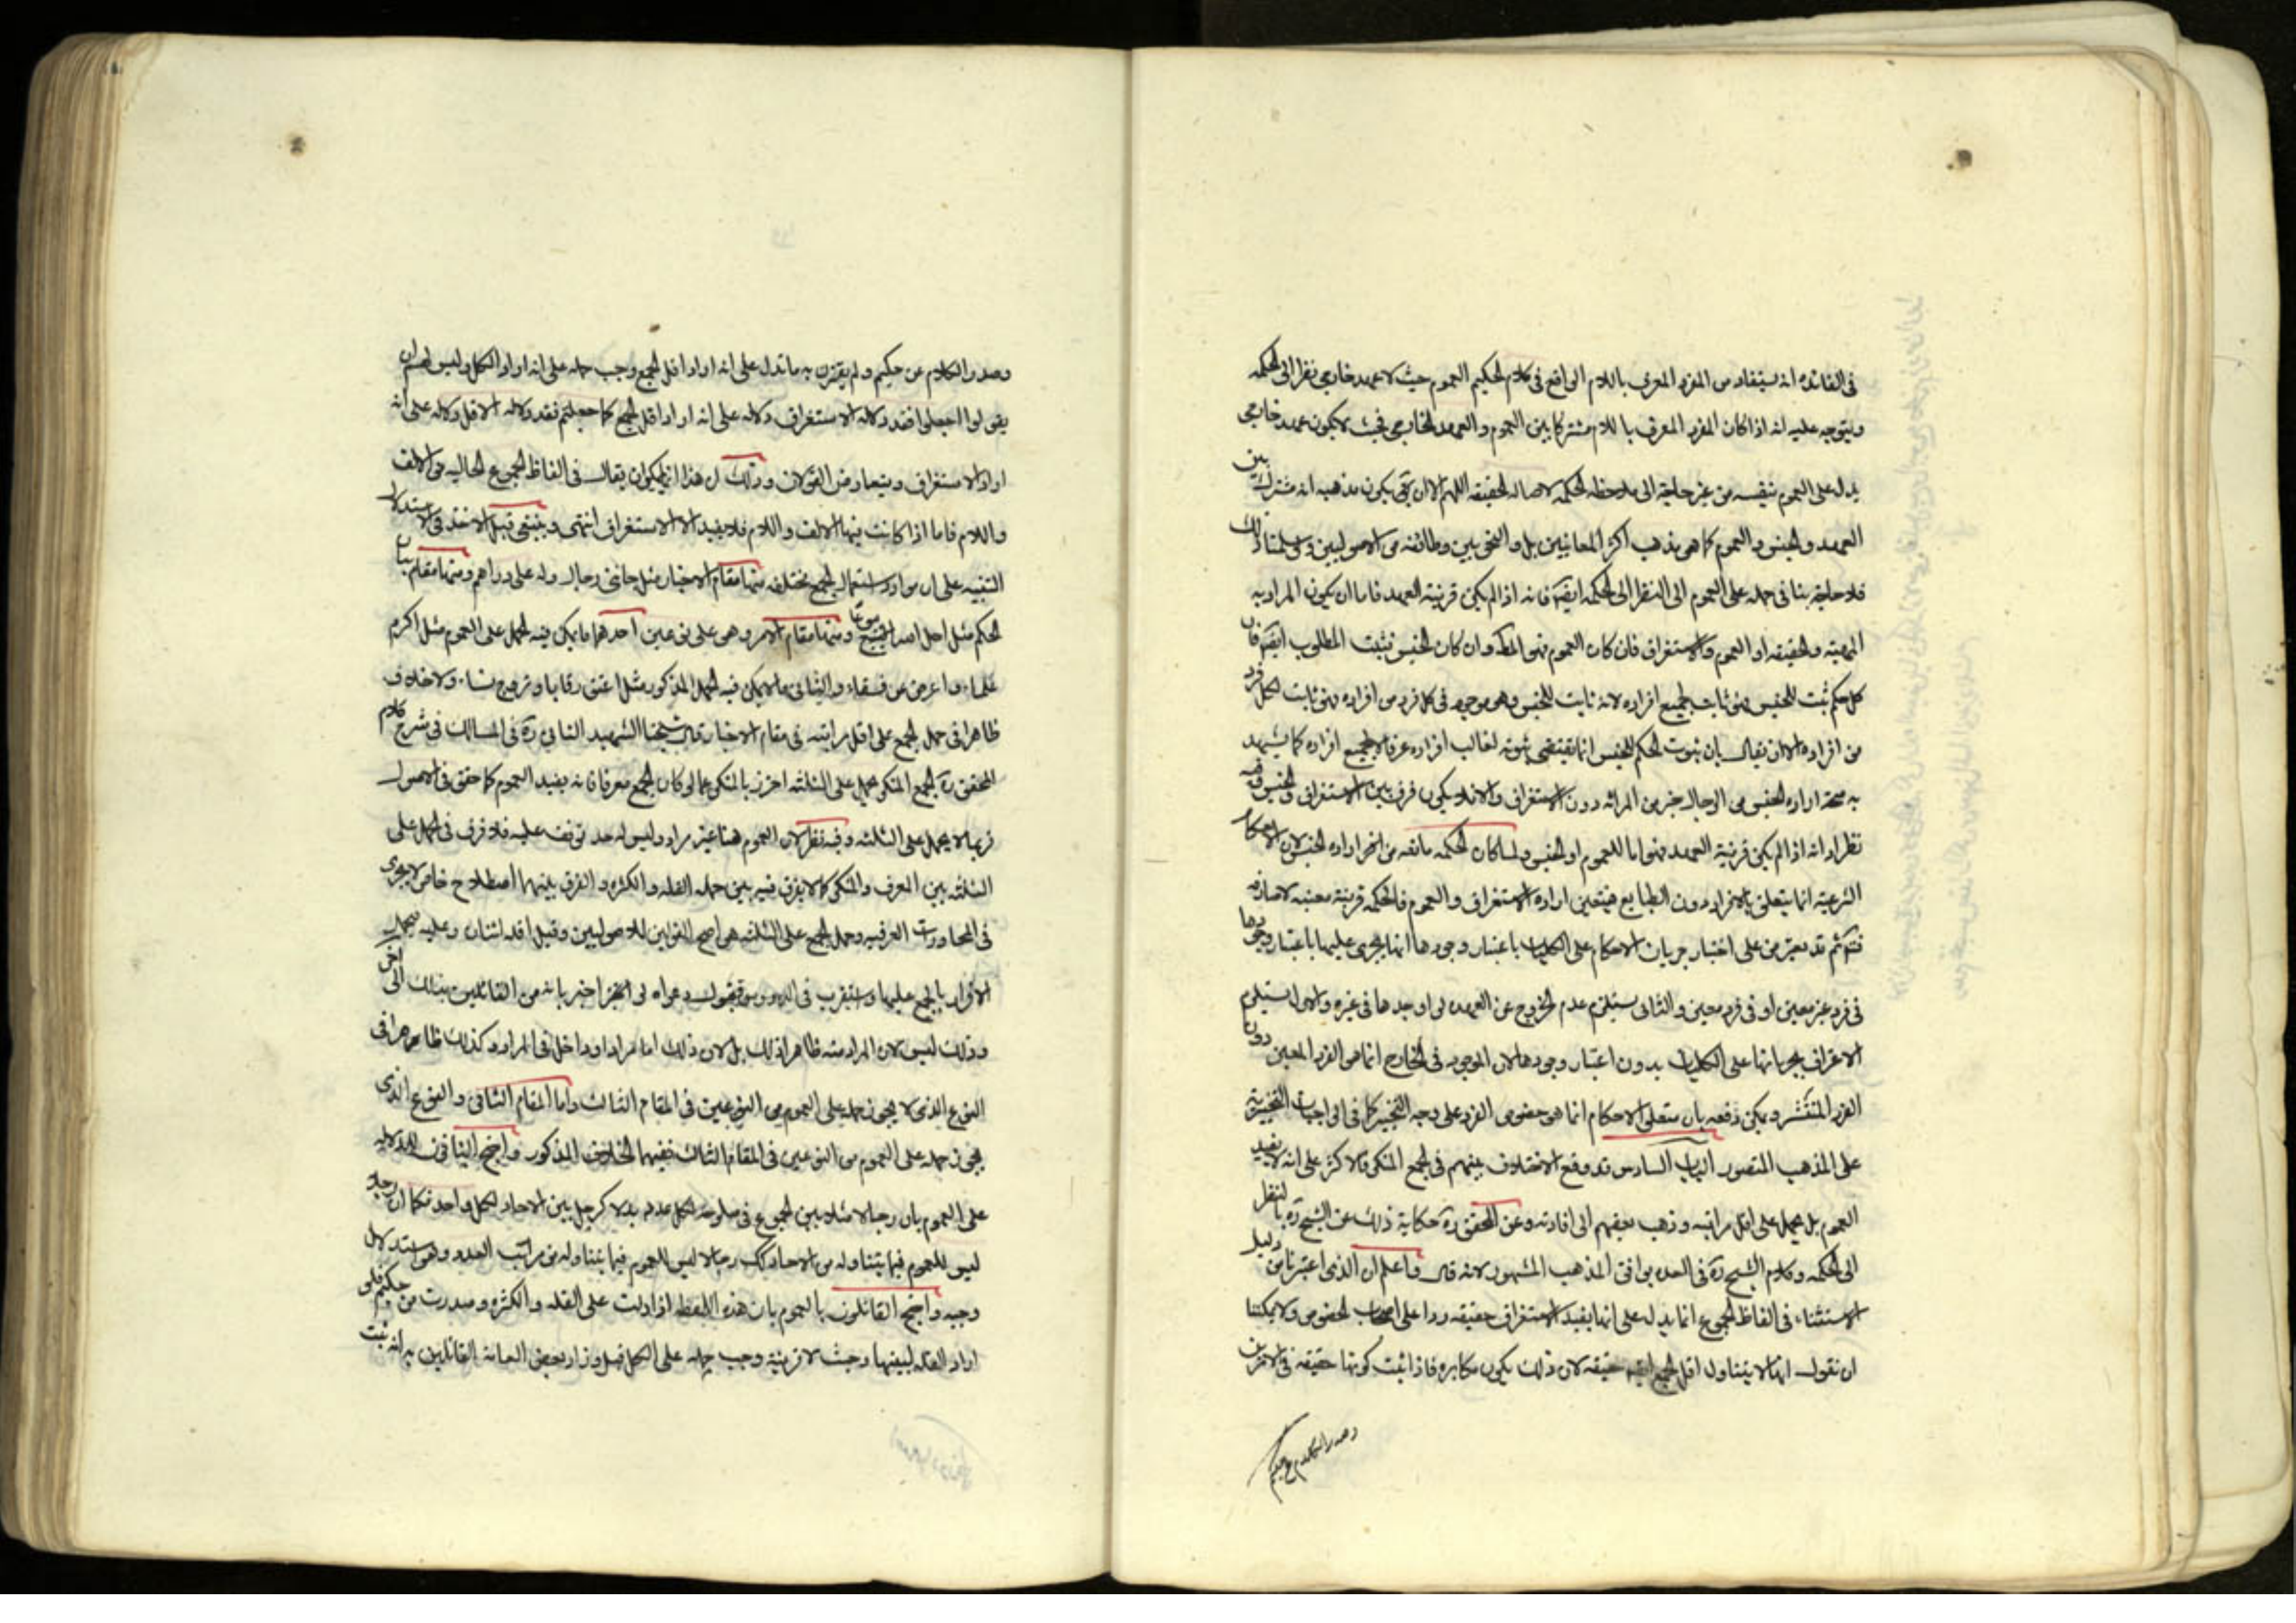 في الفائدة انه يستفاد من المفرد المعرف باللام الواقع في كلام الحكيم العموم حيث لا عهد خارجي نظرا الى الحكمة
ويتوجه عليه انه اذا كان المفرد المعرف باللام مشتركا بين العموم والعهد الخارجي فحيث لا يكون عهد خارجي
يدل على العموم بنفسه من غير حاجة الى ملاحظه الحكمه لاصاله الحقيقه اللهم الا ان يكون مذهبه انه مشترك بين
العهد والجنس والعموم كما هو مذهب اكثر المعانيين بل والنحويين وطائفه من الاصوليين ولو سلمنا ذلك
فلا حاجة بنا في حمله على العموم الى النظر الى الحكمه ايضا فانه اذا لم يكن قرينة العهد فاما ان يكون المراد به
المهية والحقيقه او العموم والاستغراق فان كان العموم فهو المط وان كان الجنس فيثبت المطلوب ايضا فان
كل حكم ثبت للجنس فهو ثابت لجميع افراده لانه ثابت للجنس وهو موجود في كل فرد من افراده فهو ثابت لكل فرد
من افراده الا ان يقال بان ثبوت الحكم للجنس انما يقتضي ثبوته لغالب افراده عرفا لا لجميع افراده كما يشهد
به صحة اراده الجنس من الرجال خير من المراه دون الاستغراق والا فلا يكون فرق بين الاستغراق والجنس وفيه
نظر اوانه اذا لم يكن قرينة العهد فهو اما للعموم او الجنس ولما كان الحكمه مانعه من اراده الجنس لان الاحكام
الشرعية انما يتعلق بالافراد دون الطبايع فيتعين اراده الاستغراق والعموم فالحكمه قرينة معينه لا صارفه
فتدبر ثم قد يعترض على اختيار جريان الاحكام على الكليات باعتبار وجودها انما يجرى عليها باعتبار وجودها
في فرد غير معين او في فرد معين والثاني يستلزم عدم الخروج عن العهده لو اوجدها في غيره والاول يستلزم
الاعتراف بجريانها على الكليات بدون اعتبار وجودها لان الموجود في الخارج انما هو الفرد المعين دون
الفرد المنتشر ويمكن دفعه بان متعلق الاحكام انما هو خصوص الفرد على وجه التخيير كما في الواجبات التخييرية
على المذهب المنصور الباب السادس قد وقع الاختلاف بينهم في الجمع المنكر فالاكثر على انه لا يفيد
العموم بل يحمل على اقل مراتبه وذهب بعضهم الى افادته وعن المحقق ره حكاية ذلك عن الشيخ ره بالنظر
الى الحكمه وكلام الشيخ ره في العده يوافق المذهب المشهور لانه قال واعلم ان الذي اعتبرناه من دليل
الاستثناء في الفاظ الجموع انما يدل على انها يفيد الاستغراق حقيقه ردا على اصحاب الخصوص ولا يمكننا
ان نقول انها لا يتناول اقل الجمع ايضا حقيقه لان ذلك يكون مكابره فاذا ثبت كونها حقيقه في الامرين
وصدر الكلام عن حكيم
وصدر الكلام عن حكيم ولم يقترن به ما تدل على انه اراد اقل الجمع وجب حمله على انه اراد الكل وليس لهم ان
يقولوا اجعلوا فقد دلاله الاستغراق دلاله على انه اراد اقل الجمع كما جعلتم فقد دلاله الاقل دلاله على انه
اراد الاستغراق ويتعارض القولان وذلك ان هذا انما يمكن ان يقال في الفاظ الجموع الخاليه من الالف
واللام فاما اذا كانت فيها الالف واللام فلا يفيد الا الاستغراق انتهى وينبغي قبل الاخذ في الاستدلال
التنبيه على ان موارد استعمال الجمع مختلفه منها مقام الاخبار مثل جائني رجال وله على دراهم ومنها مقام بيان
الحكم مثل احل الله البيع بيوعا ومنها مقام الامر وهو على نوعين احدهما ما يمكن فيه الحمل على العموم مثل اكرم
علماء واعرض عن فسقاء والثاني ما لا يمكن فيه الحمل المذكور مثل اعتق رقابا وتزوج نساء ولا خلاف
ظاهرا في حمل الجمع على اقل مراتبه في مقام الاخبار قال شيخنا الشهيد الثاني ره في المسالك في شرح كلام
المحقق ره الجمع المنكر يحمل على الثلثه احترز بالمنكر عما لو كان الجمع معرفا فانه يفيد العموم كما حقق في الاصول
فربما لا يحمل على الثلثه وفيه نظر لان العموم هنا غير مراد وليس له حد توقف عليه فلا فرق في الحمل على
الثلثه بين المعرف والمنكر كما لا يفرق فيه بين جمله القله والكثره والفرق بينهما اصطلاح خاص لا يجرى
في المحاورات العرفيه وحمل الجمع على الثلثه هو اصح القولين للاصوليين وقيل اقله اثنان وعليه يحمل
الاقرار بالجمع عليهما واستقرب في الدروس قبول دعواه لو اخبر بانه من القائلين بذلك الى اخره
وذلك ليس لان المراد منه ظاهرا ذلك بل لان ذلك اما مراد او داخل في المراد وكذلك ظاهرا في
النوع الذي لا يجوز حمله على العموم من النوعين في المقام الثالث واما المقام الثاني والنوع الذي
يجوز حمله على العموم من النوعين في المقام الثالث ففيهما الخلاف المذكور واحتج النافون للدلاله
على العموم بان رجالا مثلا بين الجموع في صلوحه لكل عدد بدلا كرجل بين الاحاد لكل واحد فكما ان رجلا
ليس للعموم فيما يتناوله من الاحاد كك رجالا ليس للعموم فيما يتناوله من مراتب العدد وهو استدلال
وجيه واحتج القائلون بالعموم بان هذه اللفظه اذا دلت على القله والكثره وصدرت من حكيم فلو
اراد القله لبينها وحيث لا قرينة وجب حمله على الكل قيل وزاد بعض العامة القائلين به انه ثبت